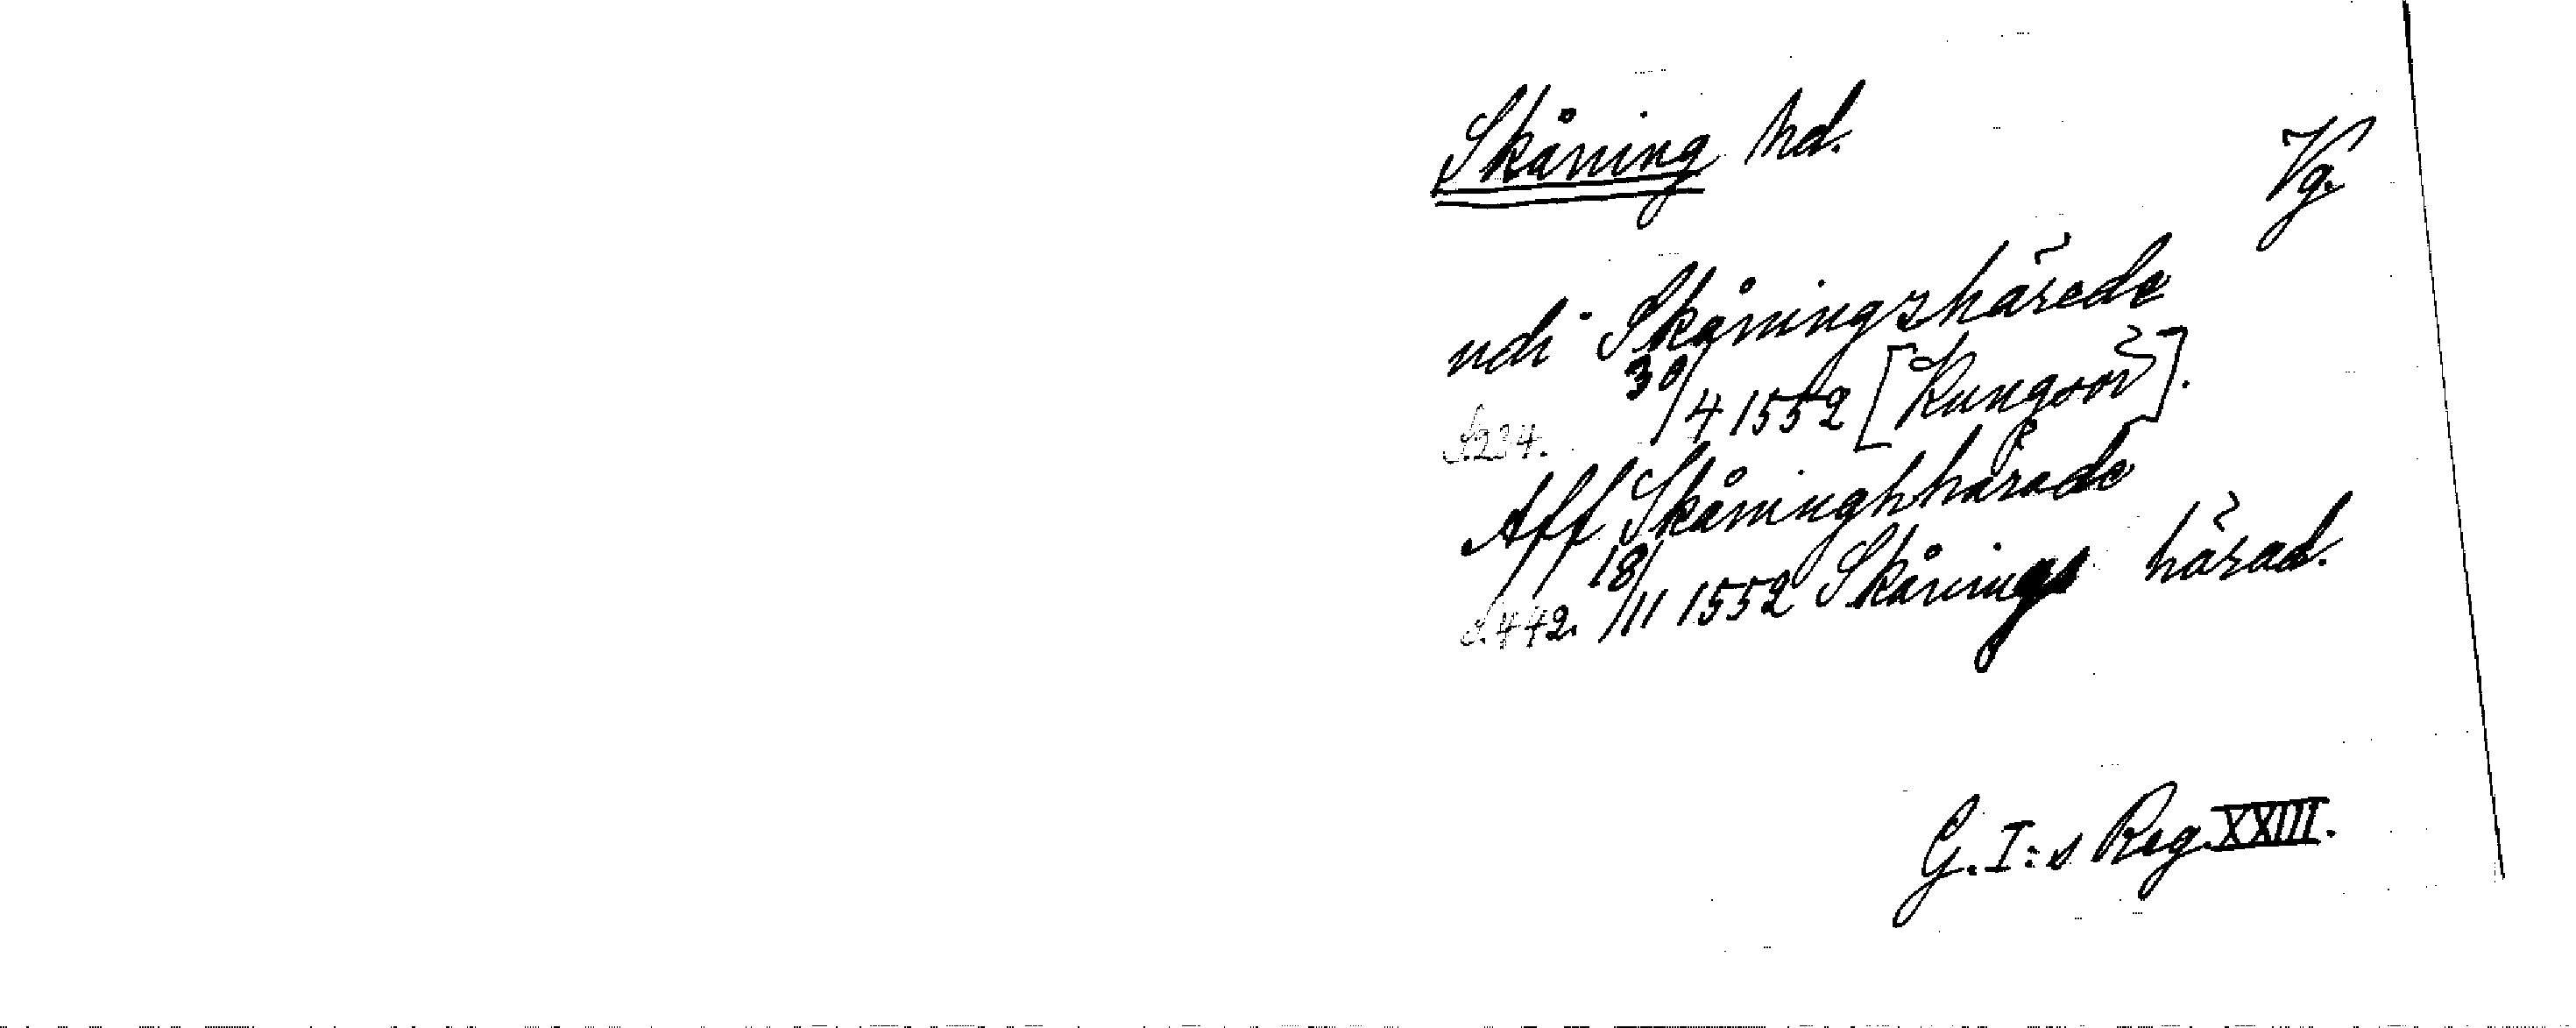 Skåning hd.
Vg.
udi Skåningzhärede
S. 234. 30/4 1552 [Kungsör].
Aff Skåninghhärade
S. 442. 18/11 1552 Skånings härad.
G. I:s Reg. XXIII.